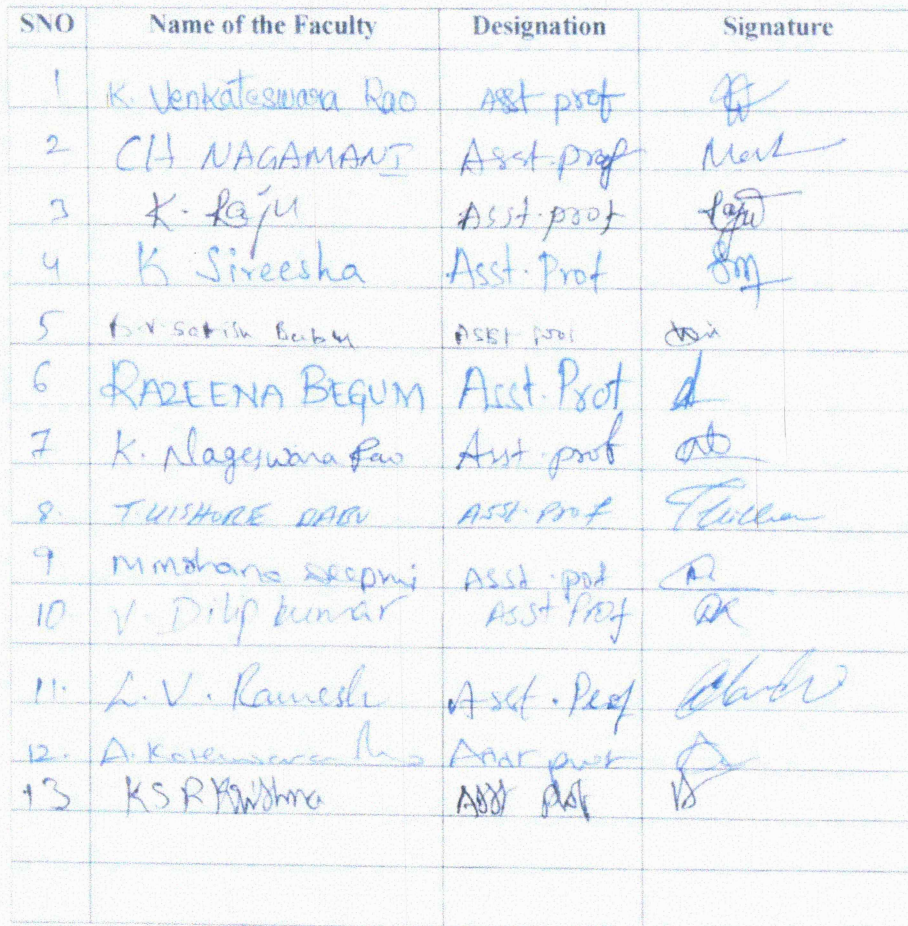 SNO Name of the Faculty Designation Signature
1 K. Venkateswara Rao Asst prof
2 CH NAGAMANI Asst. prof
3 K. Raju Asst. prof Raju
4 K Sireesha Asst. Prof
5 Satish Babu Asst prof
6 RAZEENA BEGUM Asst. Prof
7 K. Nageswara Rao Asst. prof
8. T. KISHORE BABU ASST. Prof
9 M Mohana Asst. prof
10. V. Dilip kumar Asst Prof
11. L. V. Ramesh Asst. Prof
12. A. Koteswara Rao Asst prof
13 KSR Krishna Asst prof